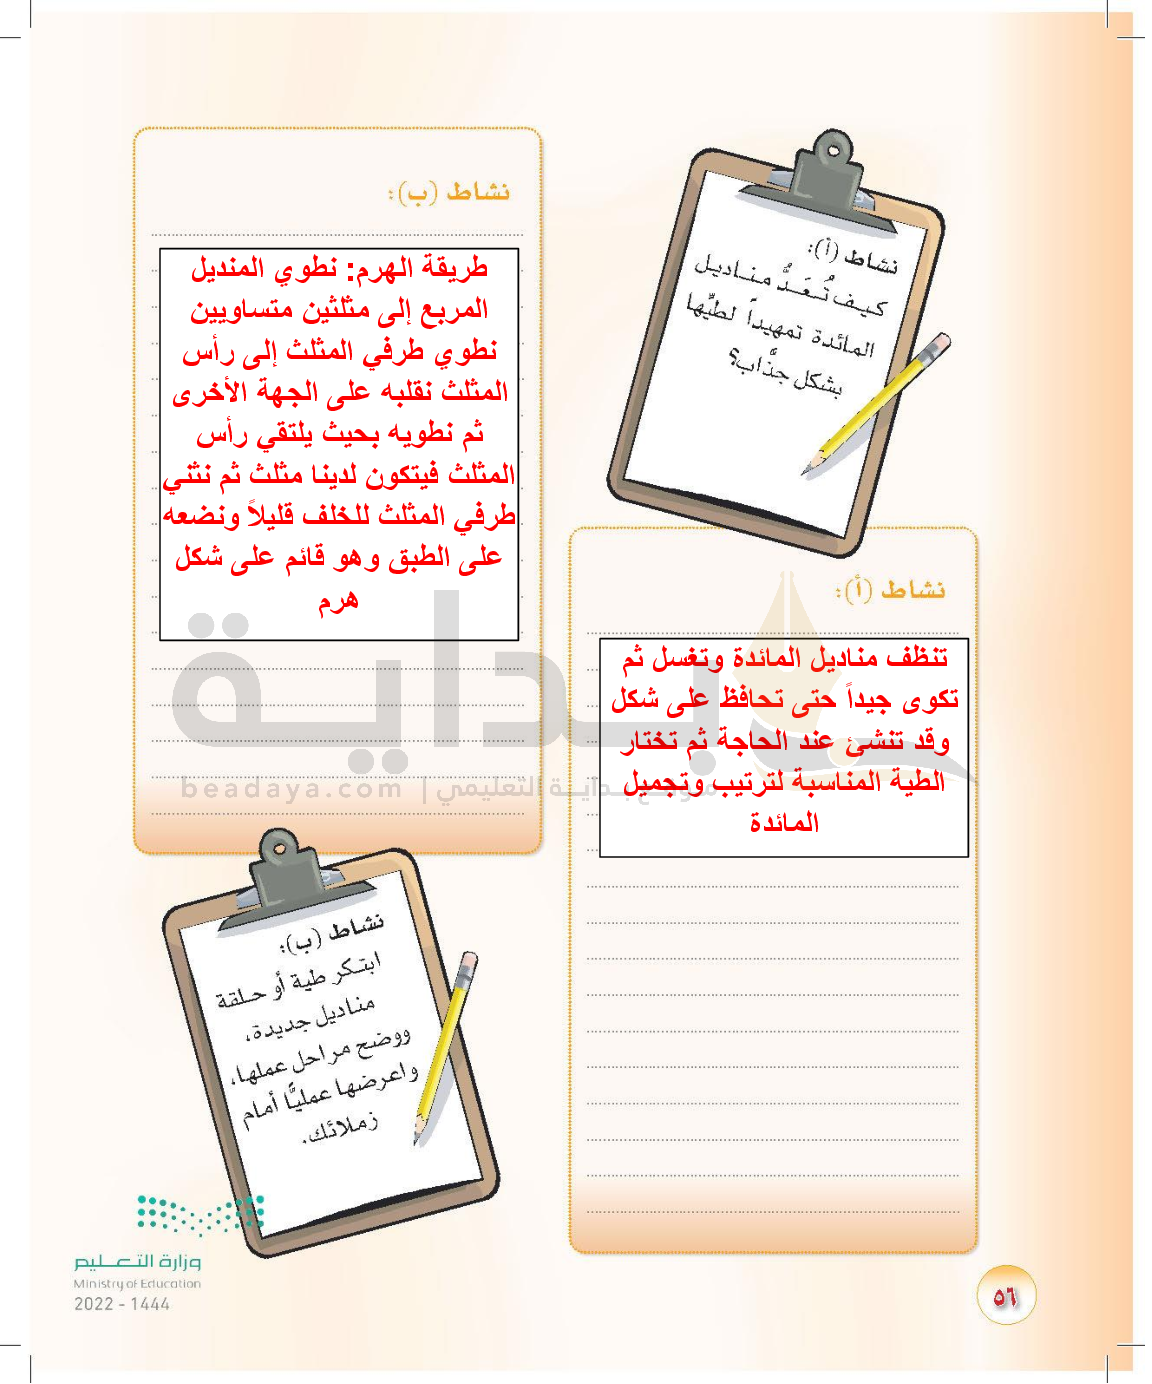 نشاط (أ):
كيف تُعَدُّ مناديل
المائدة تمهيداً لطيِّها
بشكل جذَّاب؟
نشاط (أ):
تنظف مناديل المائدة وتغسل ثم
تكوى جيداً حتى تحافظ على شكل
وقد تنشئ عند الحاجة ثم تختار
الطية المناسبة لترتيب وتجميل
المائدة
نشاط (ب):
طريقة الهرم: نطوي المنديل
المربع إلى مثلثين متساويين
نطوي طرفي المثلث إلى رأس
المثلث نقلبه على الجهة الأخرى
ثم نطويه بحيث يلتقي رأس
المثلث فيتكون لدينا مثلث ثم نثني
طرفي المثلث للخلف قليلاً ونضعه
على الطبق وهو قائم على شكل
هرم
نشاط (ب):
ابتكر طية أو حلقة
مناديل جديدة،
ووضح مراحل عملها،
واعرضها عمليًّا أمام
زملائك.
بداية
موقع بداية التعليمي | beadaya.com
وزارة التعليم
Ministry of Education
2022 - 1444
٥٦